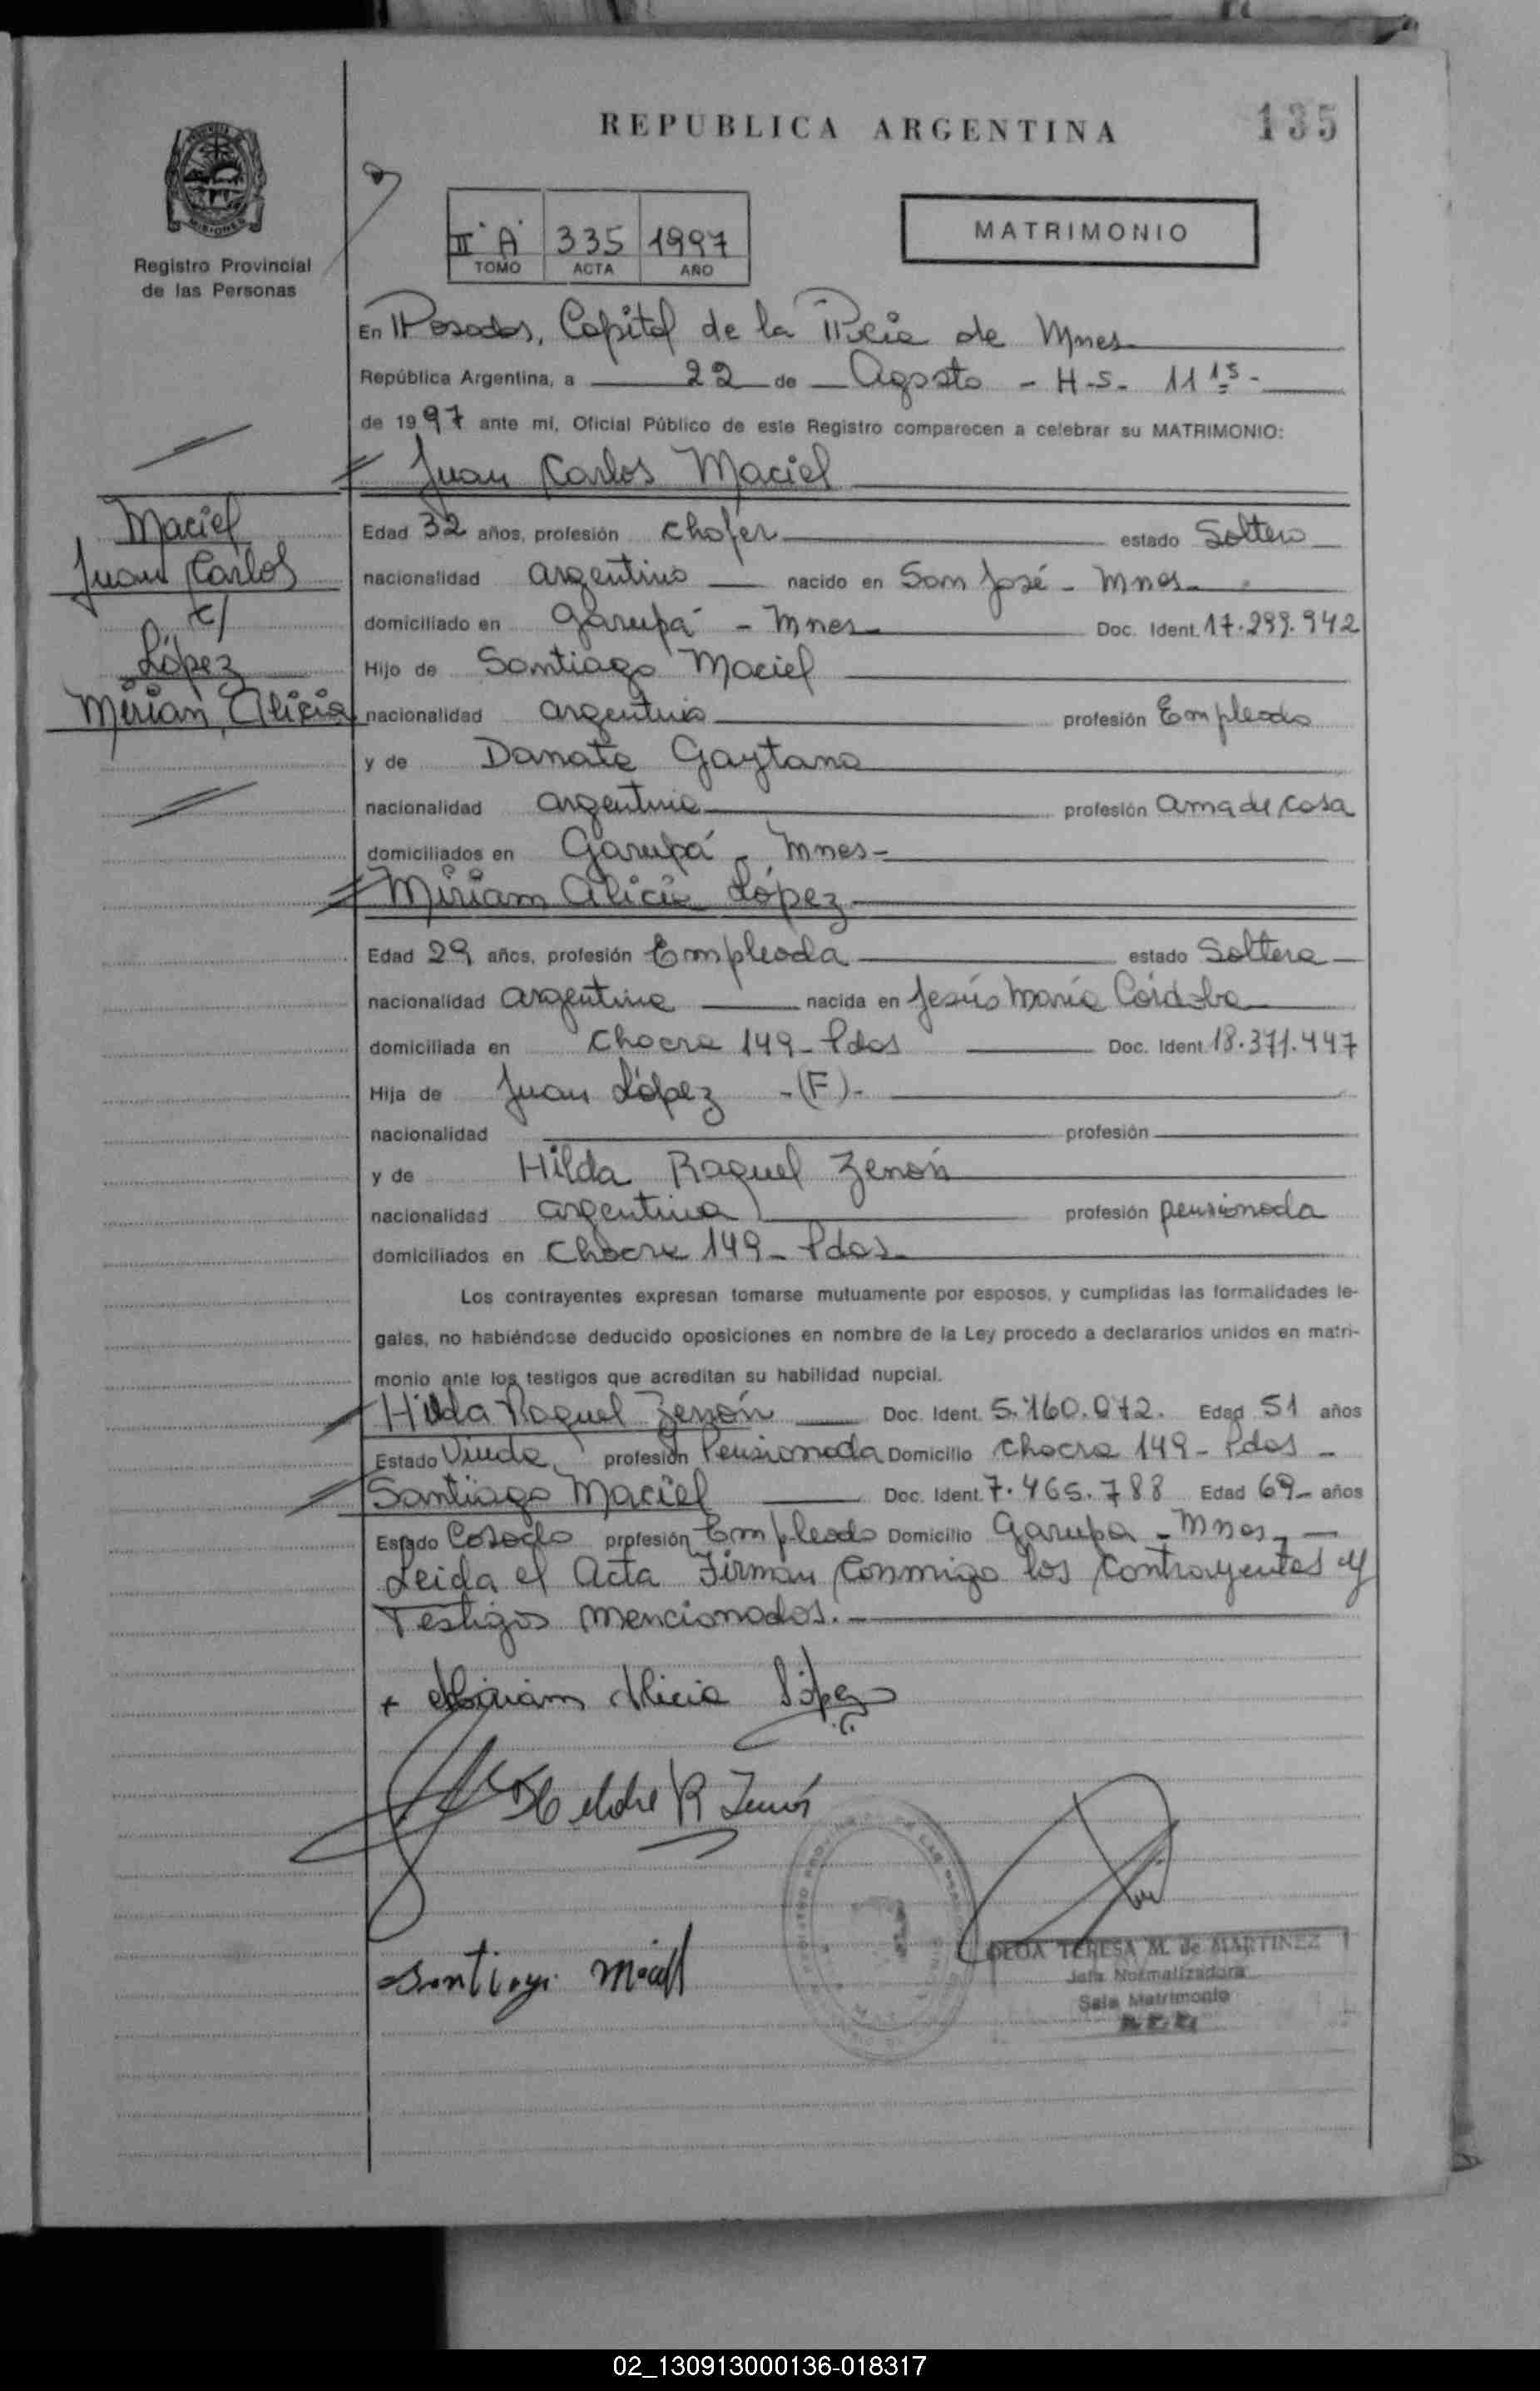 REPUBLICA ARGENTINA
135
Registro Provincial
de las Personas
II "A" 335 1997
TOMO ACTA AÑO
MATRIMONIO
En Posadas, Capital de la Pcia de Mnes
República Argentina, a 22 de Agosto - H-S- 11 15 -
de 1997 ante mí, Oficial Público de este Registro comparecen a celebrar su MATRIMONIO:
Juan Carlos Maciel
Maciel
Juan Carlos
c/
López
Mirian Alicia
Edad 32 años, profesión chofer estado Soltero
nacionalidad argentino nacido en San José - Mnes
domiciliado en Garupá - Mnes Doc. Ident. 17.299.942
Hijo de Santiago Maciel
nacionalidad argentino profesión Empleado
y de Donata Gaytano
nacionalidad argentina profesión ama de casa
domiciliados en Garupá - Mnes-
Miriam Alicia López
Edad 29 años, profesión Empleada estado Soltera
nacionalidad argentina nacida en Jesús María Córdoba
domiciliada en Chacra 149 - Pdas Doc. Ident. 18.371.447
Hija de Juan López -(F)-
nacionalidad profesión
y de Hilda Raquel Zenón
nacionalidad argentina profesión pensionada
domiciliados en Chacra 149 - Pdas
Los contrayentes expresan tomarse mutuamente por esposos, y cumplidas las formalidades le-
gales, no habiéndose deducido oposiciones en nombre de la Ley procedo a declararlos unidos en matri-
monio ante los testigos que acreditan su habilidad nupcial.
Hilda Raquel Zenón Doc. Ident. 5.160.072. Edad 51 años
Estado Viuda profesión Pensionada Domicilio Chacra 149 - Pdas -
Santiago Maciel Doc. Ident. 7.465.788 Edad 69 años
Estado Casado profesión Empleado Domicilio Garupa - Mnes -
Leida el Acta Firman conmigo los contrayentes y
Testigos mencionados.-
+ Miriam Alicia López
Hilda R Zenón
Santiago Maciel
TERESA M. de MARTINEZ
Jefa Normalizadora
Sala Matrimonio
02_130913000136-018317